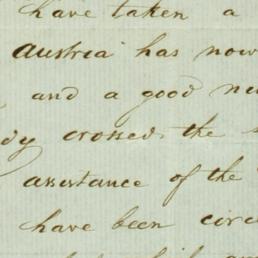 have taken a
Austria has now
and a good
dy crossed the
assistance of the
have been circ